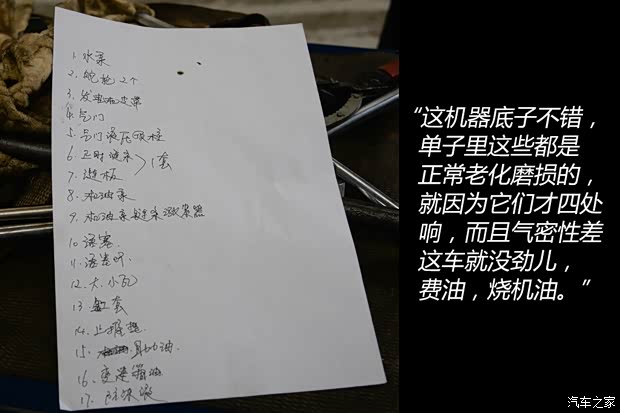 1. 水泵
2. 轮 2个
3. 发电机皮带
4. 气门
5. 气门液压顶柱
6. 正时链条 > 1套
7. 链板
8. 机油泵
9. 机油泵链条涨紧器
10. 活塞.
11. 活塞环.
12. 大.小瓦
13. 缸套
14. 止推垫.
15. 助力油.
16. 变速箱油
17. 防冻液
“这机器底子不错，
单子里这些都是
正常老化磨损的，
就因为它们才四处
响，而且气密性差
这车就没劲儿，
费油，烧机油。”
汽车之家